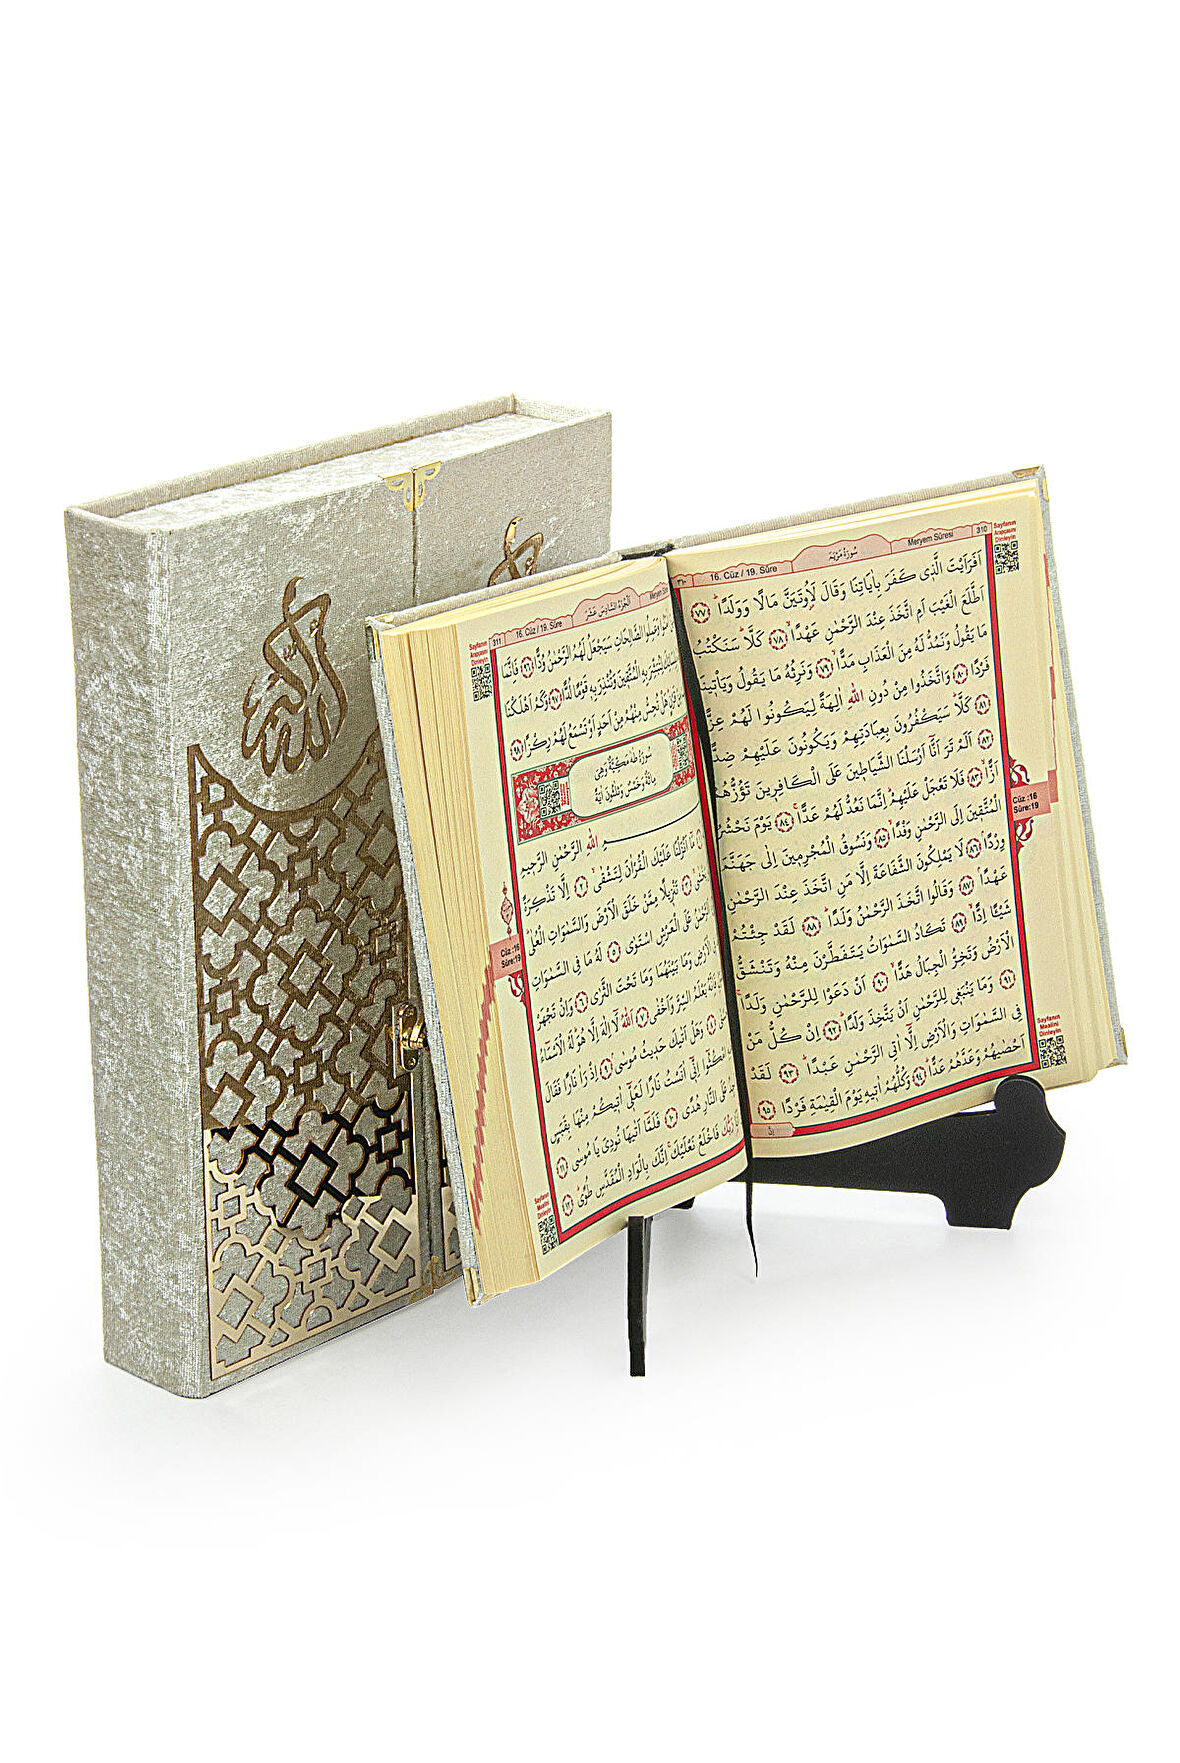 310
Meryem Sûresi
سُورَةُ مَرْيَمَ
16. Cüz / 19. Sûre
Sayfanın
Arapçasını
Dinleyin
اَفَرَاَيْتَ الَّذ۪ي كَفَرَ بِاٰيَاتِنَا وَقَالَ لَاُو۫تَيَنَّ مَالًا وَوَلَدًاۜ ﴿٧٧﴾
اَطَّلَعَ الْغَيْبَ اَمِ اتَّخَذَ عِنْدَ الرَّحْمٰنِ عَهْدًاۙ ﴿٧٨﴾ كَلَّاۜ سَنَكْتُبُ
مَا يَقُولُ وَنَمُدُّ لَهُ مِنَ الْعَذَابِ مَدًّاۙ ﴿٧٩﴾ وَنَرِثُهُ مَا يَقُولُ وَيَأْت۪ينَا
فَرْدًا ﴿٨٠﴾ وَاتَّخَذُوا مِنْ دُونِ اللّٰهِ اٰلِهَةً لِيَكُونُوا لَهُمْ عِزًّاۙ
﴿٨١﴾ كَلَّاۜ سَيَكْفُرُونَ بِعِبَادَتِهِمْ وَيَكُونُونَ عَلَيْهِمْ ضِدًّا
﴿٨٢﴾ اَلَمْ تَرَ اَنَّٓا اَرْسَلْنَا الشَّيَاط۪ينَ عَلَى الْكَافِر۪ينَ تَؤُزُّهُمْ
اَزًّاۙ ﴿٨٣﴾ فَلَا تَعْجَلْ عَلَيْهِمْۜ اِنَّمَا نَعُدُّ لَهُمْ عَدًّاۚ ﴿٨٤﴾ يَوْمَ نَحْشُرُ
الْمُتَّق۪ينَ اِلَى الرَّحْمٰنِ وَفْدًاۙ ﴿٨٥﴾ وَنَسُوقُ الْمُجْرِم۪ينَ اِلٰى جَهَنَّمَ
وِرْدًاۢ ﴿٨٦﴾ لَا يَمْلِكُونَ الشَّفَاعَةَ اِلَّا مَنِ اتَّخَذَ عِنْدَ الرَّحْمٰنِ
عَهْدًاۢ ﴿٨٧﴾ وَقَالُوا اتَّخَذَ الرَّحْمٰنُ وَلَدًاۜ ﴿٨٨﴾ لَقَدْ جِئْتُمْ
شَيْـًٔا اِدًّاۙ ﴿٨٩﴾ تَكَادُ السَّمٰوَاتُ يَتَفَطَّرْنَ مِنْهُ وَتَنْشَقُّ
الْاَرْضُ وَتَخِرُّ الْجِبَالُ هَدًّاۙ ﴿٩٠﴾ اَنْ دَعَوْا لِلرَّحْمٰنِ وَلَدًاۚ
﴿٩١﴾ وَمَا يَنْبَغ۪ي لِلرَّحْمٰنِ اَنْ يَتَّخِذَ وَلَدًاۜ ﴿٩٢﴾ اِنْ كُلُّ مَنْ
فِي السَّمٰوَاتِ وَالْاَرْضِ اِلَّٓا اٰتِي الرَّحْمٰنِ عَبْدًاۜ ﴿٩٣﴾ لَقَدْ
اَحْصٰيهُمْ وَعَدَّهُمْ عَدًّاۜ ﴿٩٤﴾ وَكُلُّهُمْ اٰت۪يهِ يَوْمَ الْقِيٰمَةِ فَرْدًا ﴿٩٥﴾
اِنَّ
Cüz :16
Sûre:19
Sayfanın
Mealini
Dinleyin
اَلْجُزْءُ السَّادِسَ عَشَرَ
16. Cüz / 19. Sûre
311
Sayfanın
Arapçasını
Dinleyin
الصَّالِحَاتِ سَيَجْعَلُ لَهُمُ الرَّحْمٰنُ وُدًّا ﴿٩٦﴾ فَاِنَّمَا
الْمُتَّق۪ينَ وَتُنْذِرَ بِه۪ قَوْمًا لُدًّا ﴿٩٧﴾ وَكَمْ اَهْلَكْنَا
هَلْ تُحِسُّ مِنْهُمْ مِنْ اَحَدٍ اَوْ تَسْمَعُ لَهُمْ رِكْزًا ﴿٩٨﴾
سُورَةُ طٰهٰ مَكِّيَّةٌ وَهِيَ
مِائَةٌ وَخَمْسٌ وَثَلٰثُونَ اٰيَةً
اللّٰهِ الرَّحْمٰنِ الرَّح۪يمِ
مَٓا اَنْزَلْنَا عَلَيْكَ الْقُرْاٰنَ لِتَشْقٰىۙ ﴿٢﴾ اِلَّا تَذْكِرَةً
﴿٣﴾ تَنْز۪يلًا مِمَّنْ خَلَقَ الْاَرْضَ وَالسَّمٰوَاتِ الْعُلٰى
عَلَى الْعَرْشِ اسْتَوٰى ﴿٥﴾ لَهُ مَا فِي السَّمٰوَاتِ
وَمَا بَيْنَهُمَا وَمَا تَحْتَ الثَّرٰى ﴿٦﴾ وَاِنْ تَجْهَرْ
فَاِنَّهُ يَعْلَمُ السِّرَّ وَاَخْفٰى ﴿٧﴾ اَللّٰهُ لَٓا اِلٰهَ اِلَّا هُوَۜ لَهُ الْاَسْمَٓاءُ
﴿٨﴾ وَهَلْ اَتٰيكَ حَد۪يثُ مُوسٰىۢ ﴿٩﴾ اِذْ رَاٰ نَارًا فَقَالَ
امْكُثُٓوا اِنّ۪ٓي اٰنَسْتُ نَارًا لَعَلّ۪ٓي اٰت۪يكُمْ مِنْهَا بِقَبَسٍ
عَلَى النَّارِ هُدًى ﴿١٠﴾ فَلَمَّٓا اَتٰيهَا نُودِيَ يَا مُوسٰى ﴿١١﴾
رَبُّكَ فَاخْلَعْ نَعْلَيْكَۚ اِنَّكَ بِالْوَادِ الْمُقَدَّسِ طُوًىۜ ﴿١٢﴾
Cüz :16
Sûre:19
Sayfanın
Mealini
Dinleyin